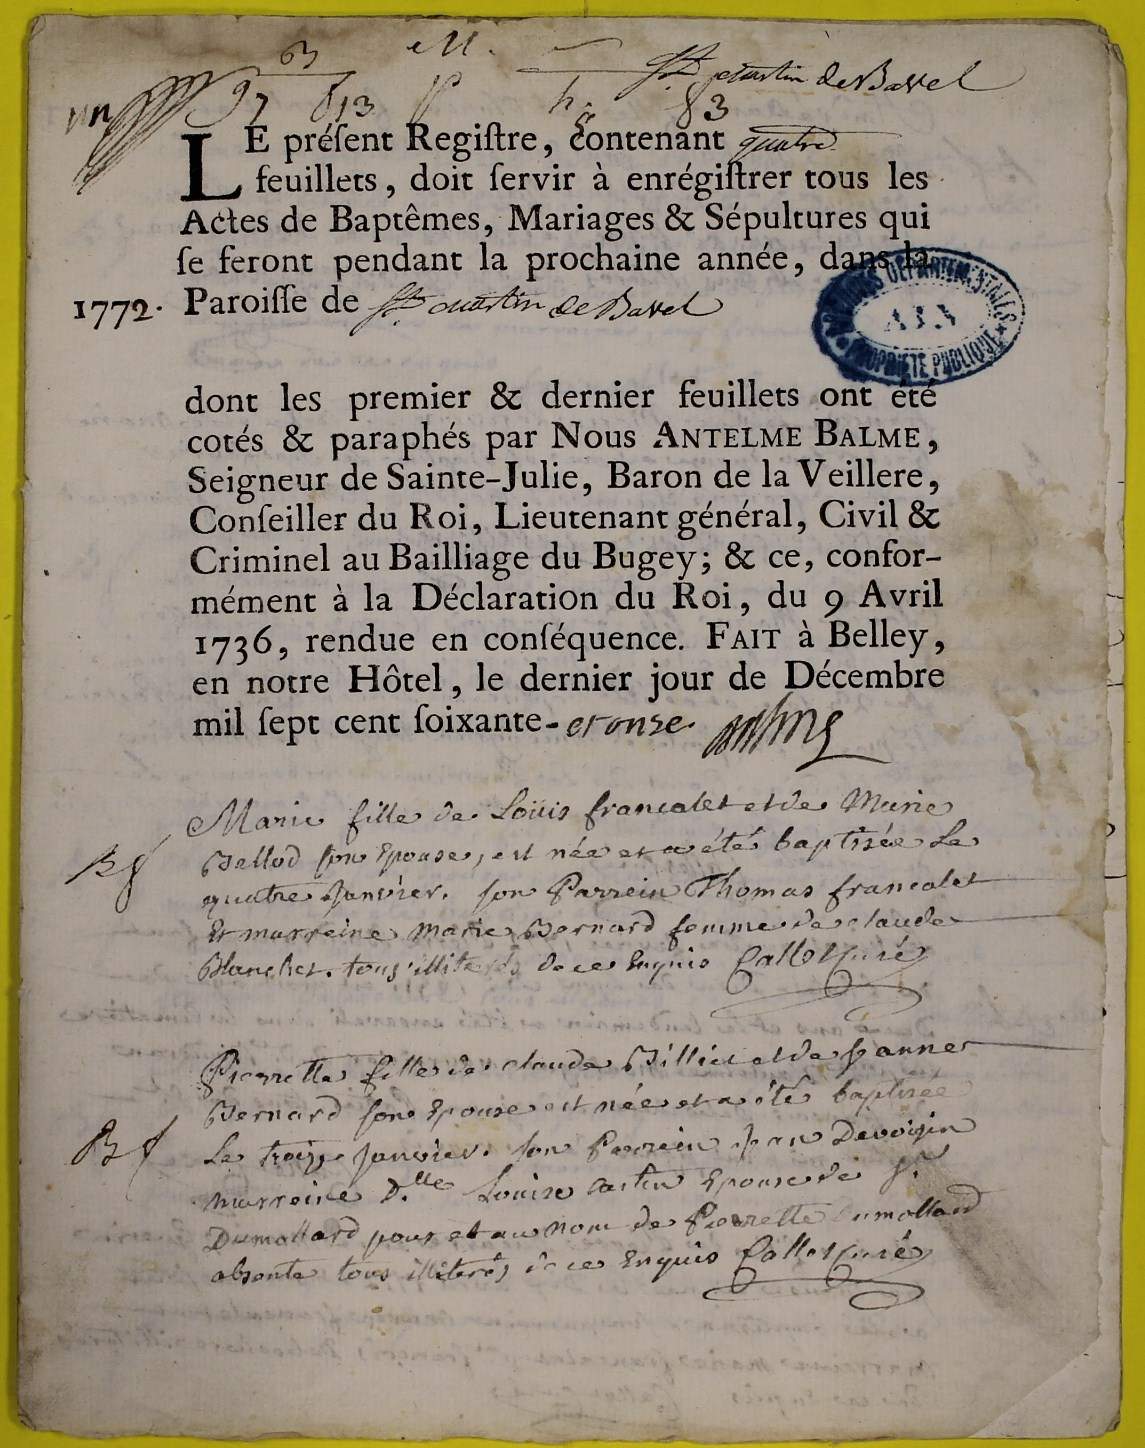 B M. St martin de Bavel
un 97 B13 h. 83
LE préſent Regiſtre, contenant quatre
feuillets, doit ſervir à enrégiſtrer tous les
Actes de Baptêmes, Mariages & Sépultures qui
ſe feront pendant la prochaine année, dans la
1772. Paroiſſe de St martin de Bavel
ARCHIVES DÉPARTEMENTALES
AIN
PROPRIÉTÉ PUBLIQUE
dont les premier & dernier feuillets ont été
cotés & paraphés par Nous ANTELME BALME,
Seigneur de Sainte-Julie, Baron de la Veillere,
Conſeiller du Roi, Lieutenant général, Civil &
Criminel au Bailliage du Bugey; & ce, confor-
mément à la Déclaration du Roi, du 9 Avril
1736, rendue en conſéquence. FAIT à Belley,
en notre Hôtel, le dernier jour de Décembre
mil ſept cent ſoixante-et onze
Marie fille de Loüis francalet et de Marie
Bellod son Epouse, est née et a étés baptisée Le
B f quatre Janvier. son Parrein Thomas francalet
Et marreine marie Bernard femme de claude
Blanchet. tous illiterés de ce Enquis Callet Curé
Pierrette fille de claude Billiet et de Jeanne
Bernard son Epouse est née et a étés baptisée
B f Le treize Janvier. son Parrein Jean Devoisin
marreine D.lle Louise Epouse de Sr
Dumollard pour et au nom de Pierrette Dumollard
absente tous illiterés de ce Enquis Callet Curé